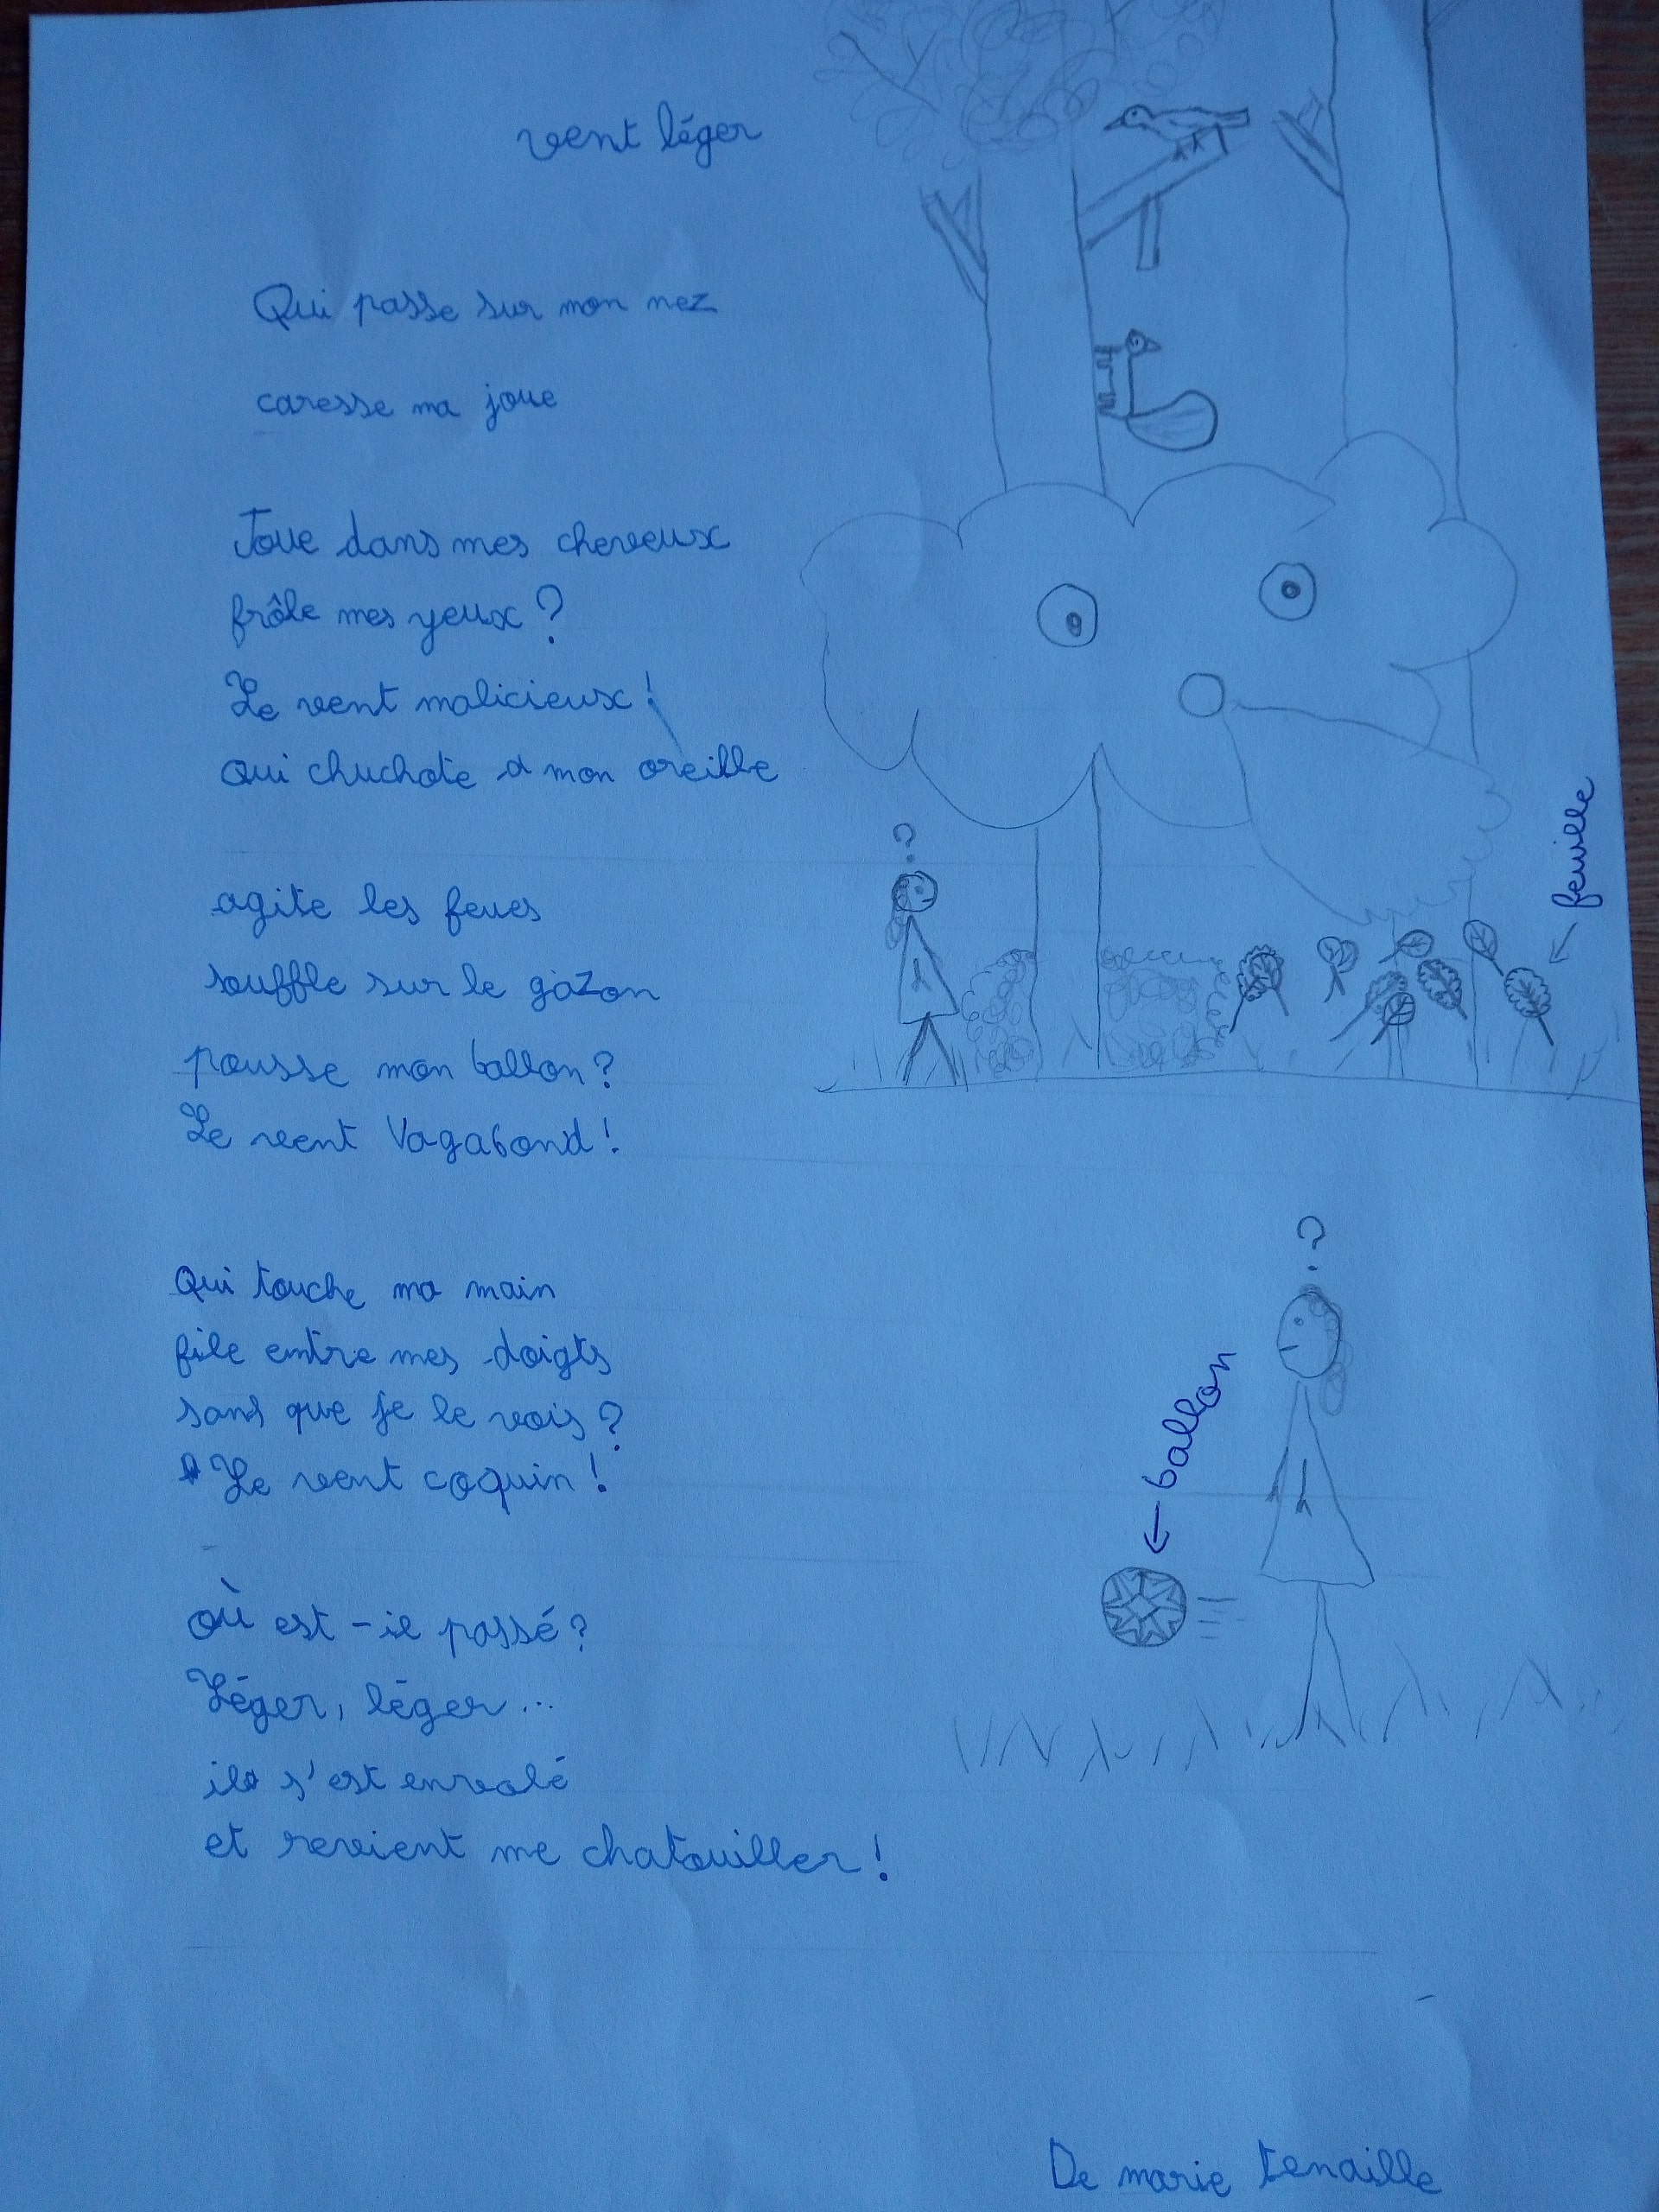 vent léger
Qui passe sur mon nez
caresse ma joue
Joue dans mes cheveux
frôle mes yeux ?
Le vent malicieux !
Qui chuchote a mon oreille
agite les feues
souffle sur le gazon
pousse mon ballon ?
Le vent Vagabond !
Qui touche ma main
file entre mes doigts
sans que je le vois ?
Le vent coquin !
où est-il passé ?
Léger, léger...
il s'est envolé
et revient me chatouiller !
?
← feuille
?
← ballon
De marie tenaille